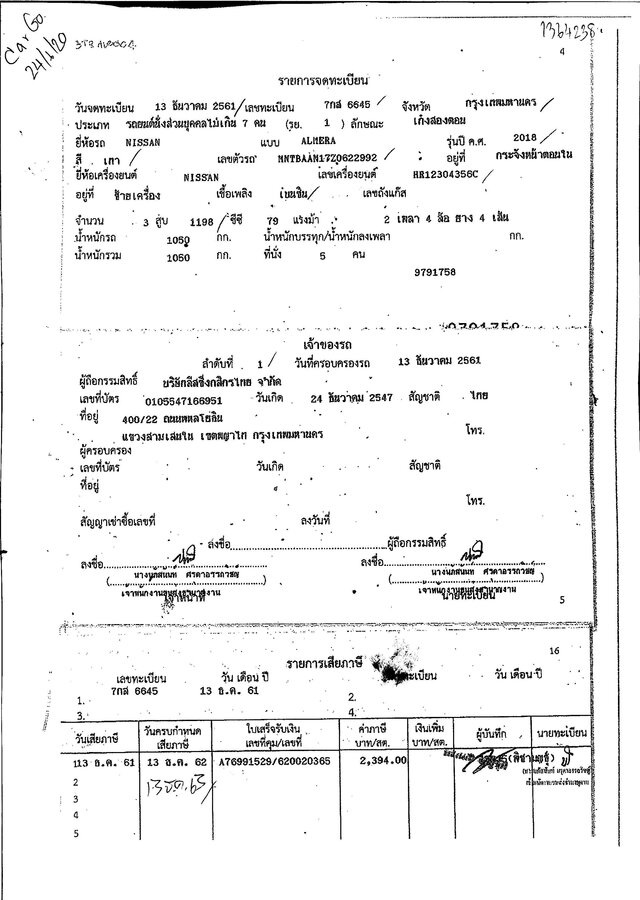 Car Go.
24/1/20
1364238
4
รายการจดทะเบียน
วันจดทะเบียน 13 ธันวาคม 2561 เลขทะเบียน 7กส 6645 จังหวัด กรุงเทพมหานคร
ประเภท รถยนต์นั่งส่วนบุคคลไม่เกิน 7 คน (รย. 1 ) ลักษณะ เก๋งสองตอน
ยี่ห้อรถ NISSAN แบบ ALMERA รุ่นปี ค.ศ. 2018
สี เทา เลขตัวรถ MNTBAAN17Z0622992 อยู่ที่ กระจังหน้าตอนใน
ยี่ห้อเครื่องยนต์ NISSAN เลขเครื่องยนต์ HR12304356C
อยู่ที่ ซ้ายเครื่อง เชื้อเพลิง เบนซิน เลขถังแก๊ส
จำนวน 3 สูบ 1198 ซีซี 79 แรงม้า 2 เพลา 4 ล้อ ยาง 4 เส้น
น้ำหนักรถ 1050 กก. น้ำหนักบรรทุก/น้ำหนักลงเพลา กก.
น้ำหนักรวม 1050 กก. ที่นั่ง 5 คน
9791758
9791758
เจ้าของรถ
ลำดับที่ 1 วันที่ครอบครองรถ 13 ธันวาคม 2561
ผู้ถือกรรมสิทธิ์ บริษัทลีสซิ่งกสิกรไทย จำกัด
เลขที่บัตร 0105547166951 วันเกิด 24 ธันวาคม 2547 สัญชาติ ไทย
ที่อยู่ 400/22 ถนนพหลโยธิน
แขวงสามเสนใน เขตพญาไท กรุงเทพมหานคร โทร.
ผู้ครอบครอง
เลขที่บัตร วันเกิด สัญชาติ
ที่อยู่
โทร.
สัญญาเช่าซื้อเลขที่ ลงวันที่
ลงชื่อ ผู้ถือกรรมสิทธิ์
ลงชื่อ ลงชื่อ
เจ้าหน้าที่ นายทะเบียน
5
16
รายการเสียภาษี
เลขทะเบียน วัน เดือน ปี ทะเบียน วัน เดือน ปี
1. 7กส 6645 13 ธ.ค. 61 2.
3. 4.
วันเสียภาษี วันครบกำหนดเสียภาษี ใบเสร็จรับเงิน เลขที่คุม/เลขที่ ค่าภาษี บาท/สต. เงินเพิ่ม บาท/สต. ผู้บันทึก นายทะเบียน
1 13 ธ.ค. 61 13 ธ.ค. 62 A76991529/620020365 2,394.00
2 13 ธ.ค. 63
3
4
5